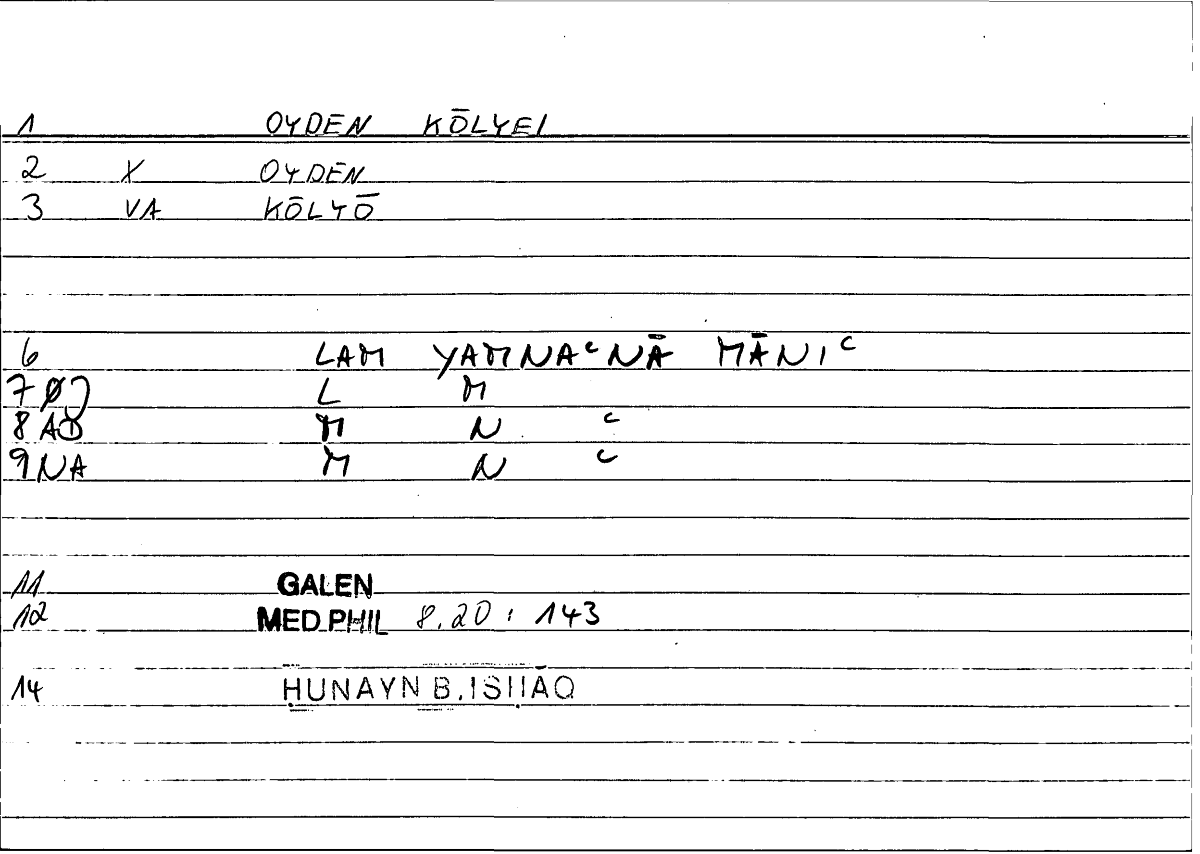 1 OYDEN KŌLYEI
2 X OYDEN
3 VA KŌLYŌ
6 LAM YAMNAᶜNĀ MĀNIᶜ
7 L M
8 M N ᶜ
9 NA M N ᶜ
11 GALEN
12 MED.PHIL 8.20 : 143
14 ḤUNAYN B. ISḤĀQ